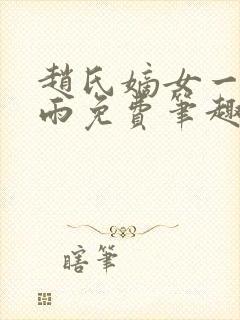 趙氏嫡女一
雨免費筆趣
瞎筆